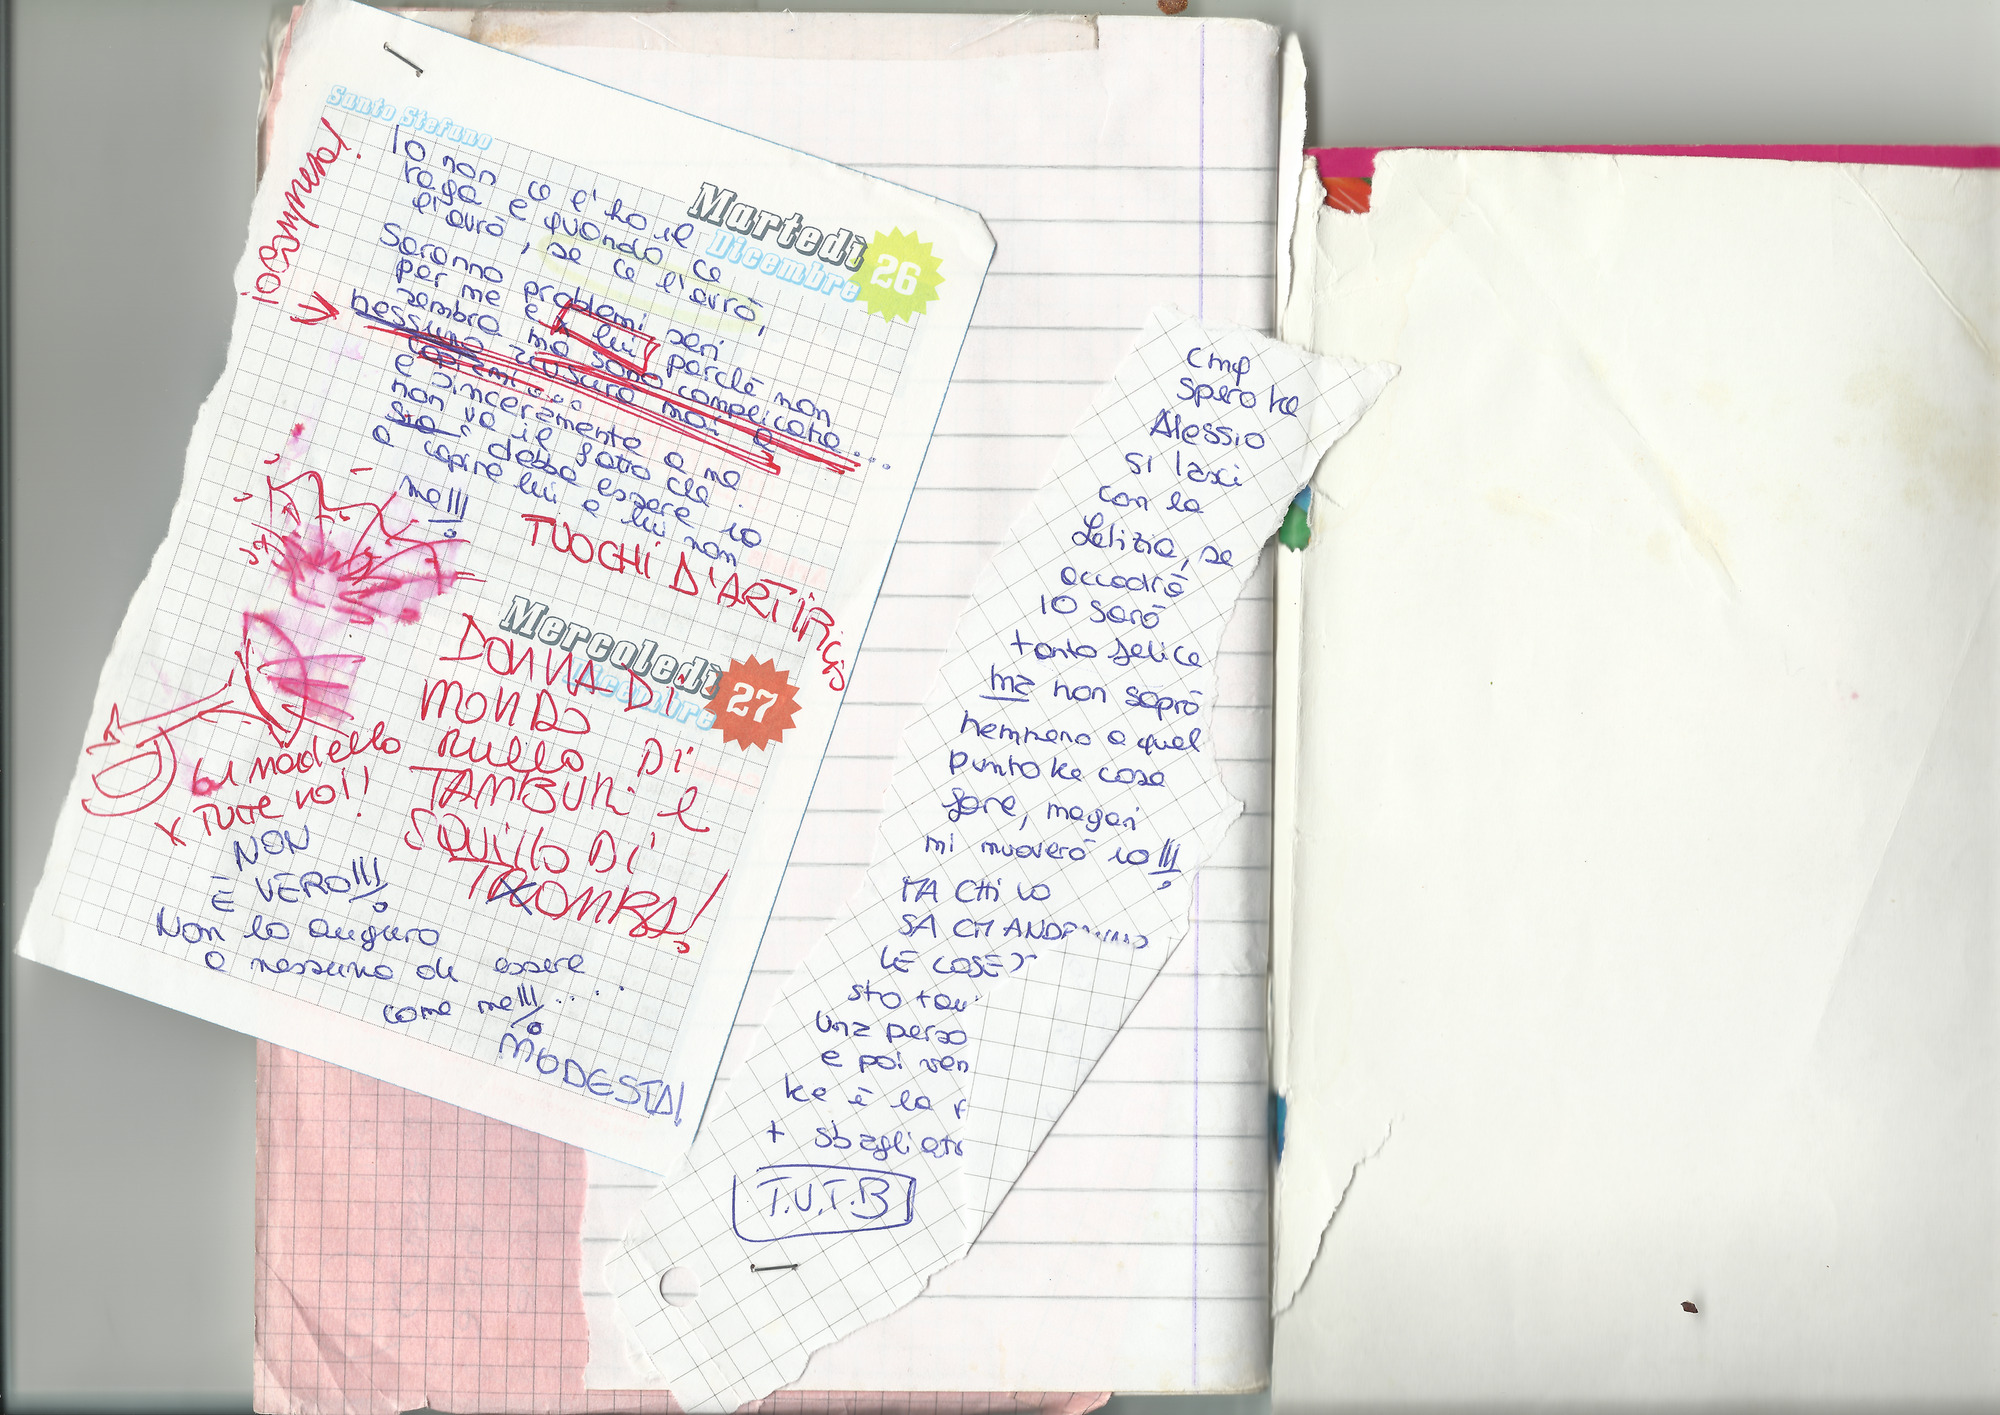 Santo Stefano
Martedì
Dicembre
26
Io non ce l'ho il
raga e quando ce
l'avrò, se ce l'avrò,
Saranno problemi seri
per me e x lui perché non
sembra ma sono complicata...
nessuno riuscirà mai a
capirmi...
e sinceramente a me
non va il fatto che
sia debba essere io
a capire lui e lui non
me!!!
io compresa!
TUOCHI D'ARTIFICIO
Mercoledì
Dicembre
27
DONNA DI
MONDO
RULLO DI
TAMBURI e
SQUILLO DI
TROMBA!
un modello
x TUTTE NOI!
NON
È VERO!!!
Non lo auguro
a nessuno di essere
come me!!!....
MODESTA!
Cmq
spero ke
Alessio
si lasci
con la
Letizia, se
accadrà
io sarò
tanto felice
ma non saprò
nemmeno a quel
punto ke cosa
fare, magari
mi muoverò io!!!
MA CHI LO
SA CM ANDRANNO
LE COSE?
sto
una perso
e poi ven
ke è la
+ sbagliat
T.V.T.B